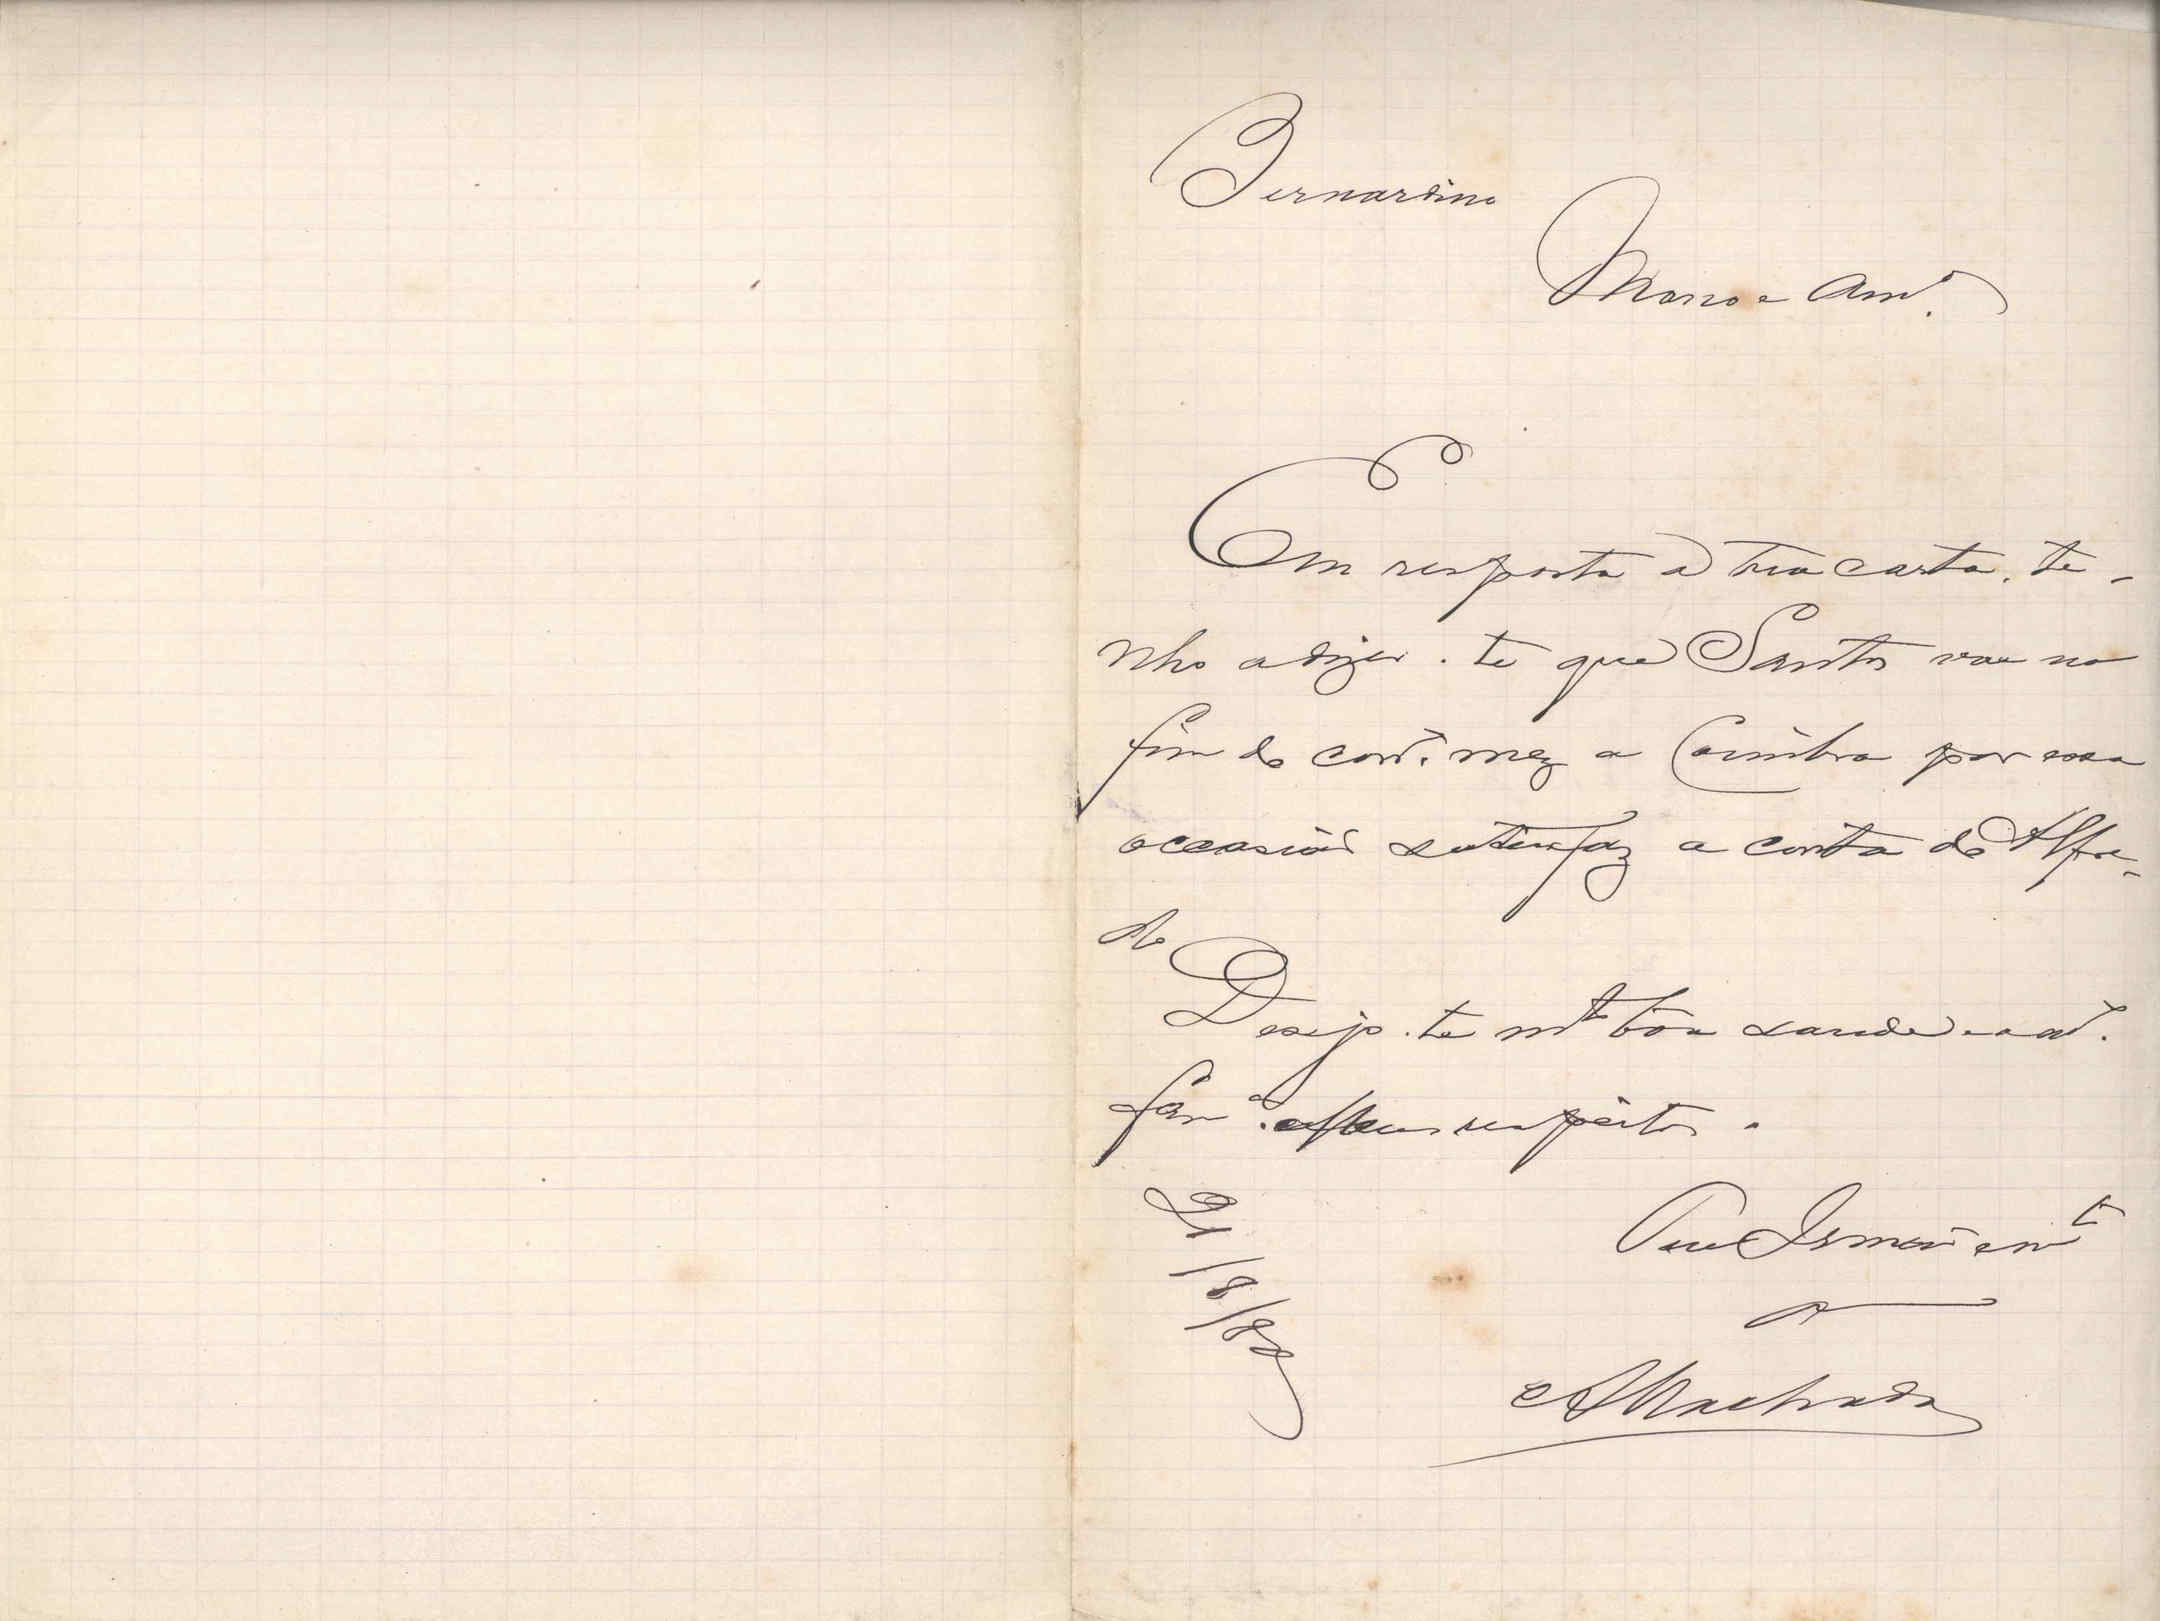 Bernardino
Mano e Amº.
Em resposta á tua carta. te-
nho a dizer-te que Santos vae no
fim do corr.e mez a Coimbra por essa
occasião satisfaz a conta do Alfre-
do
Desejo-te mtª bôa saude e a
famª. Meus respeitos.
Teu Irmão amt
A Machado
21/8/82